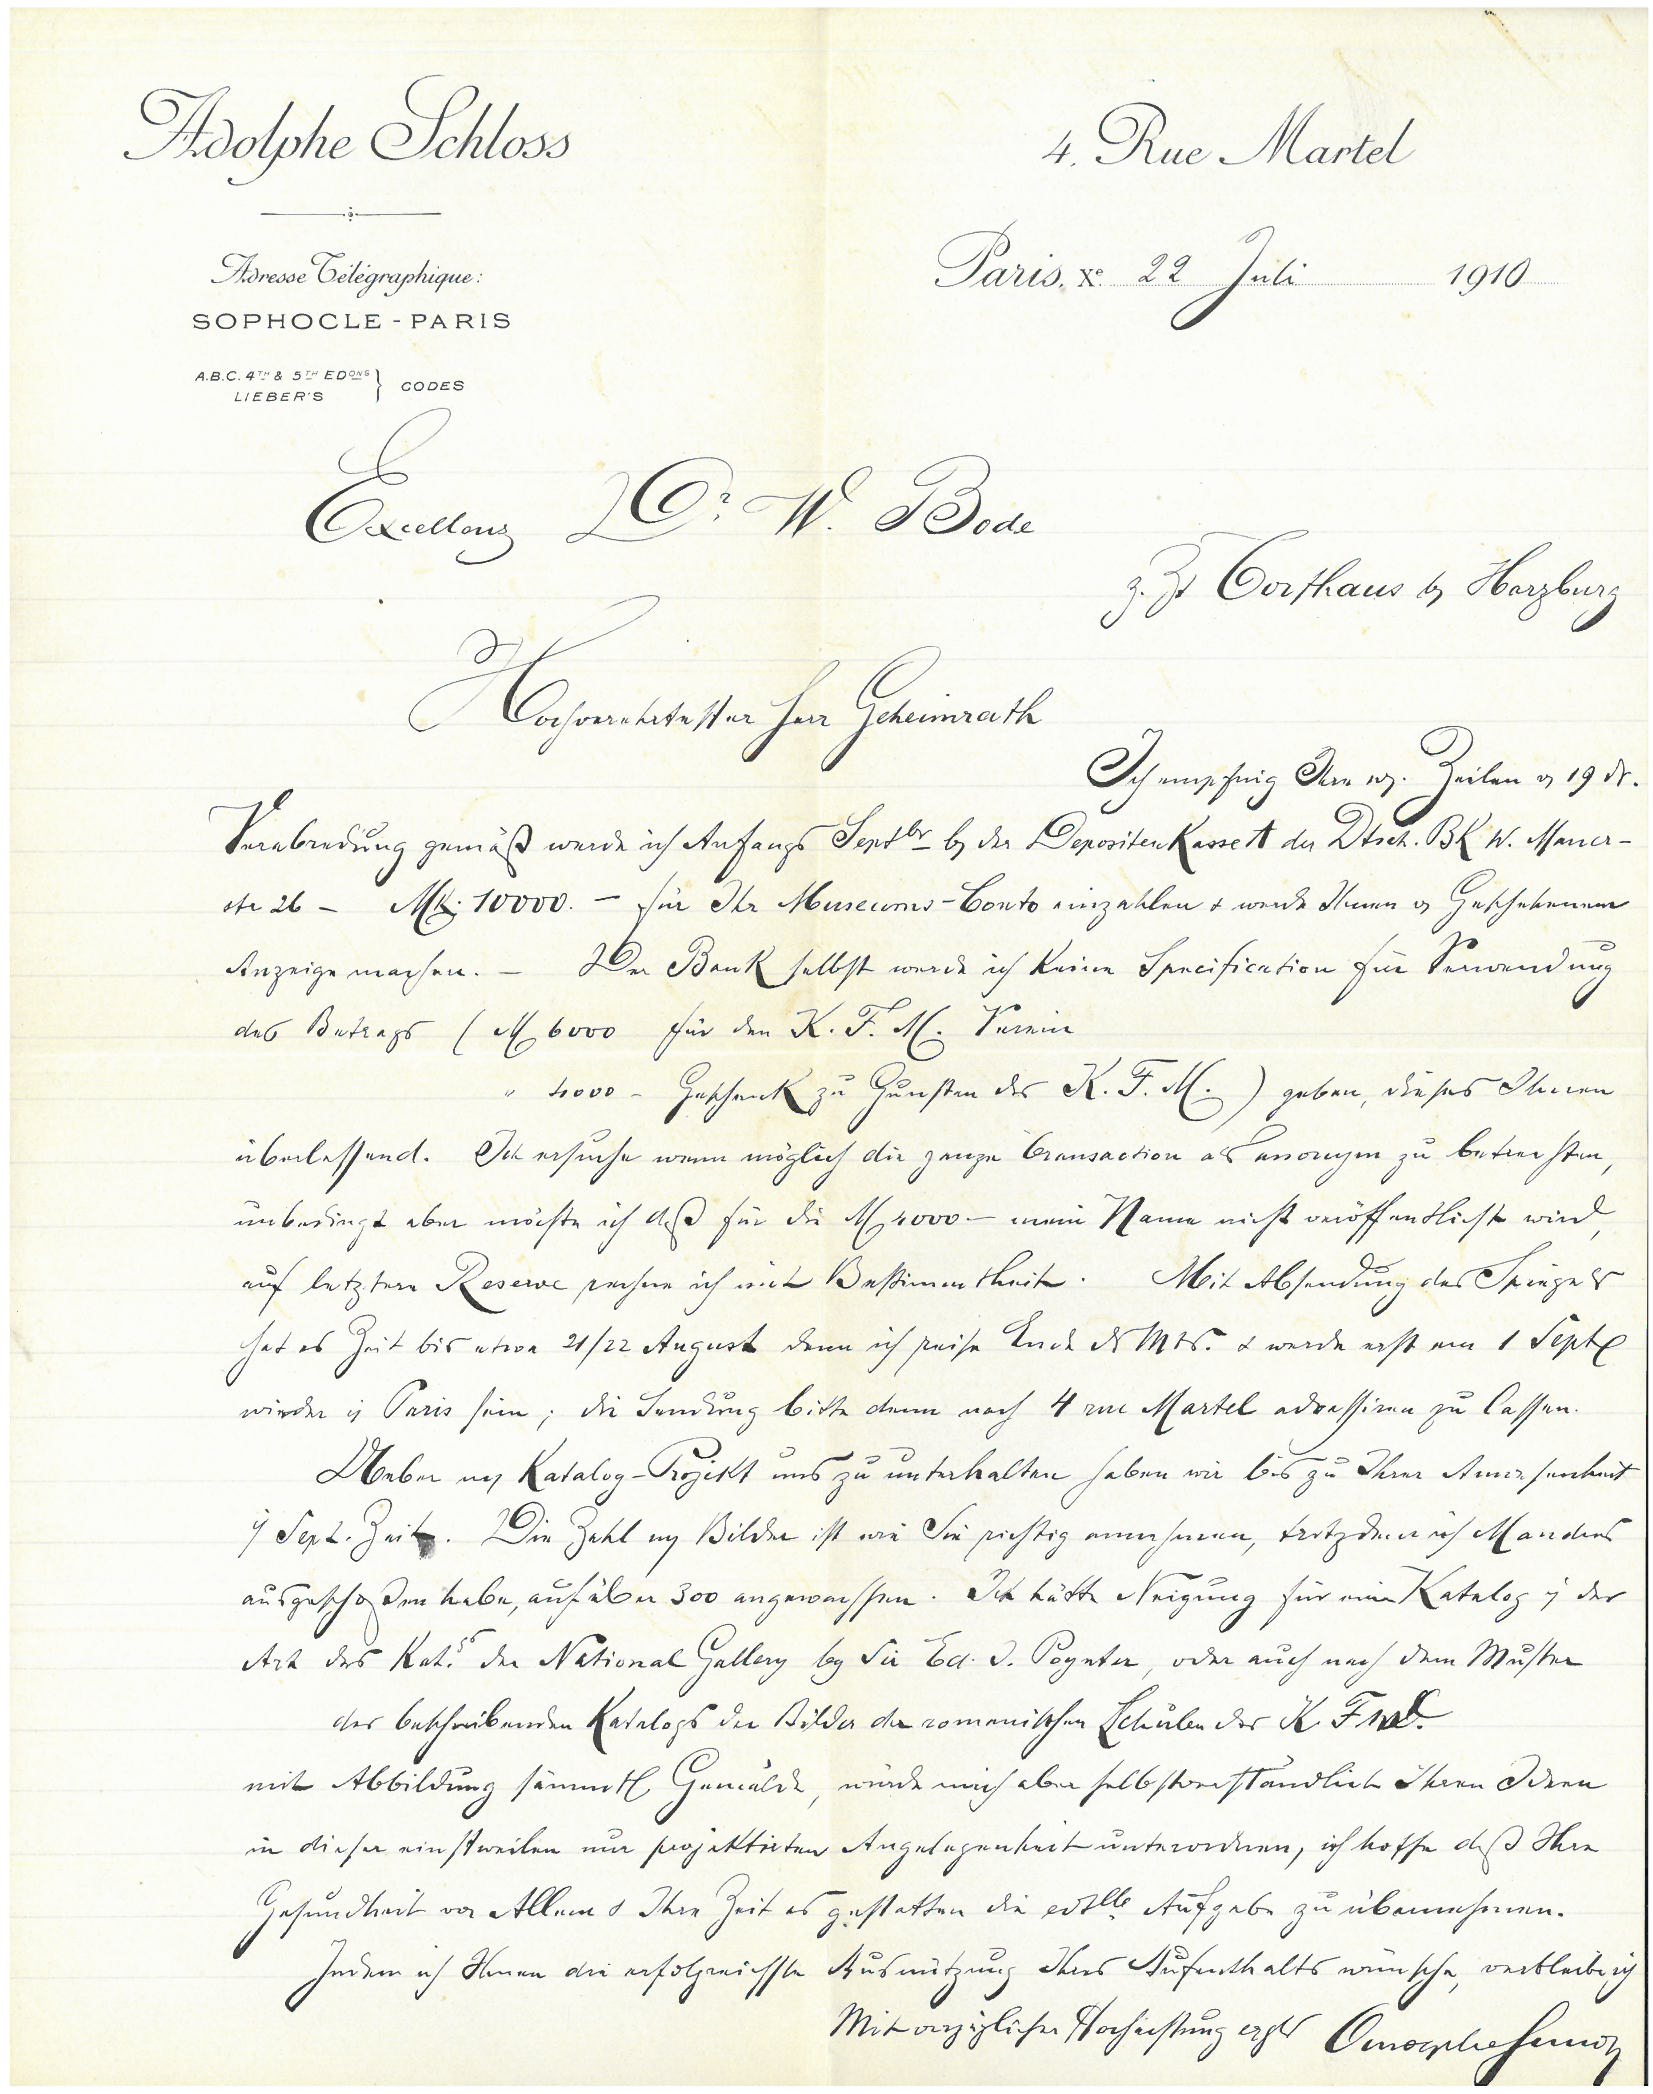 Adolphe Schloss
4. Rue Martel
Adresse Télégraphique:
SOPHOCLE - PARIS
A.B.C. 4TH & 5TH EDONS
LIEBER'S } CODES
Paris, Xe. 22 Juli 1910
Excellenz Dr. W. Bode
z. Zt Torfhaus b/ Harzburg
Hochverehrtester Herr Geheimrath
Ich empfing Ihre Zeilen v 19 ds.
Verabredung gemäß werde ich Anfangs Septbr b/ der Depositenkasse A der Dtsch. Bk W. Mauer-
str 26 – Mk. 10000. – für Ihr Museums-Conto einzahlen & werde Ihnen v Geschehenem
Anzeige machen. – Der Bank selbst werde ich keine Specification für Verwendung
des Betrags ( M 6000 für den K. F. M. Verein
" 4000 – Geschenk zu Gunsten des K. F. M. ) geben, dieses Ihnen
überlassend. Ich ersuche wenn möglich die ganze Transaction als anonym zu betrachten,
unbedingt aber möchte ich daß für die M 4000 – mein Name nicht veröffentlicht wird,
auf letztere Reserve rechne ich mit Bestimmtheit. Mit Absendung des Spiegels
hat es Zeit bis etwa 21/22 August denn ich reise Ende ds Mts. & werde erst am 1 Sept
wieder i/ Paris sein; die Sendung bitte dann nach 4 rue Martel adressiren zu lassen.
Ueber m/ Katalog-Projekt uns zu unterhalten haben wir bis zu Ihrer Anwesenheit
i/ Sept. Zeit. Die Zahl m/ Bilder ist wie Sie richtig annehmen, trotzdem ich Manches
ausgeschoßen habe, auf über 300 angewachsen. Ich hätte Neigung für einen Katalog i/ der
Art des Kat.s der National Gallery by Sir Ed. J. Poynter, oder auch nach dem Muster
des beschreibenden Katalogs der Bilder der romanischen Schulen des K. F. M.
mit Abbildung sämmtl. Gemälde, würde mich aber selbstverständlich Ihren Ideen
in dieser einstweilen nur projektirten Angelegenheit unterordnen, ich hoffe daß Ihre
Gesundheit vor Allem & Ihre Zeit es gestatten die Aufgabe zu übernehmen.
Indem ich Ihnen die erfolgreichste Ausnützung Ihres Aufenthalts wünsche, verbleibe ich
Mit vorzüglicher Hochachtung ergbs Adolphe Schloss